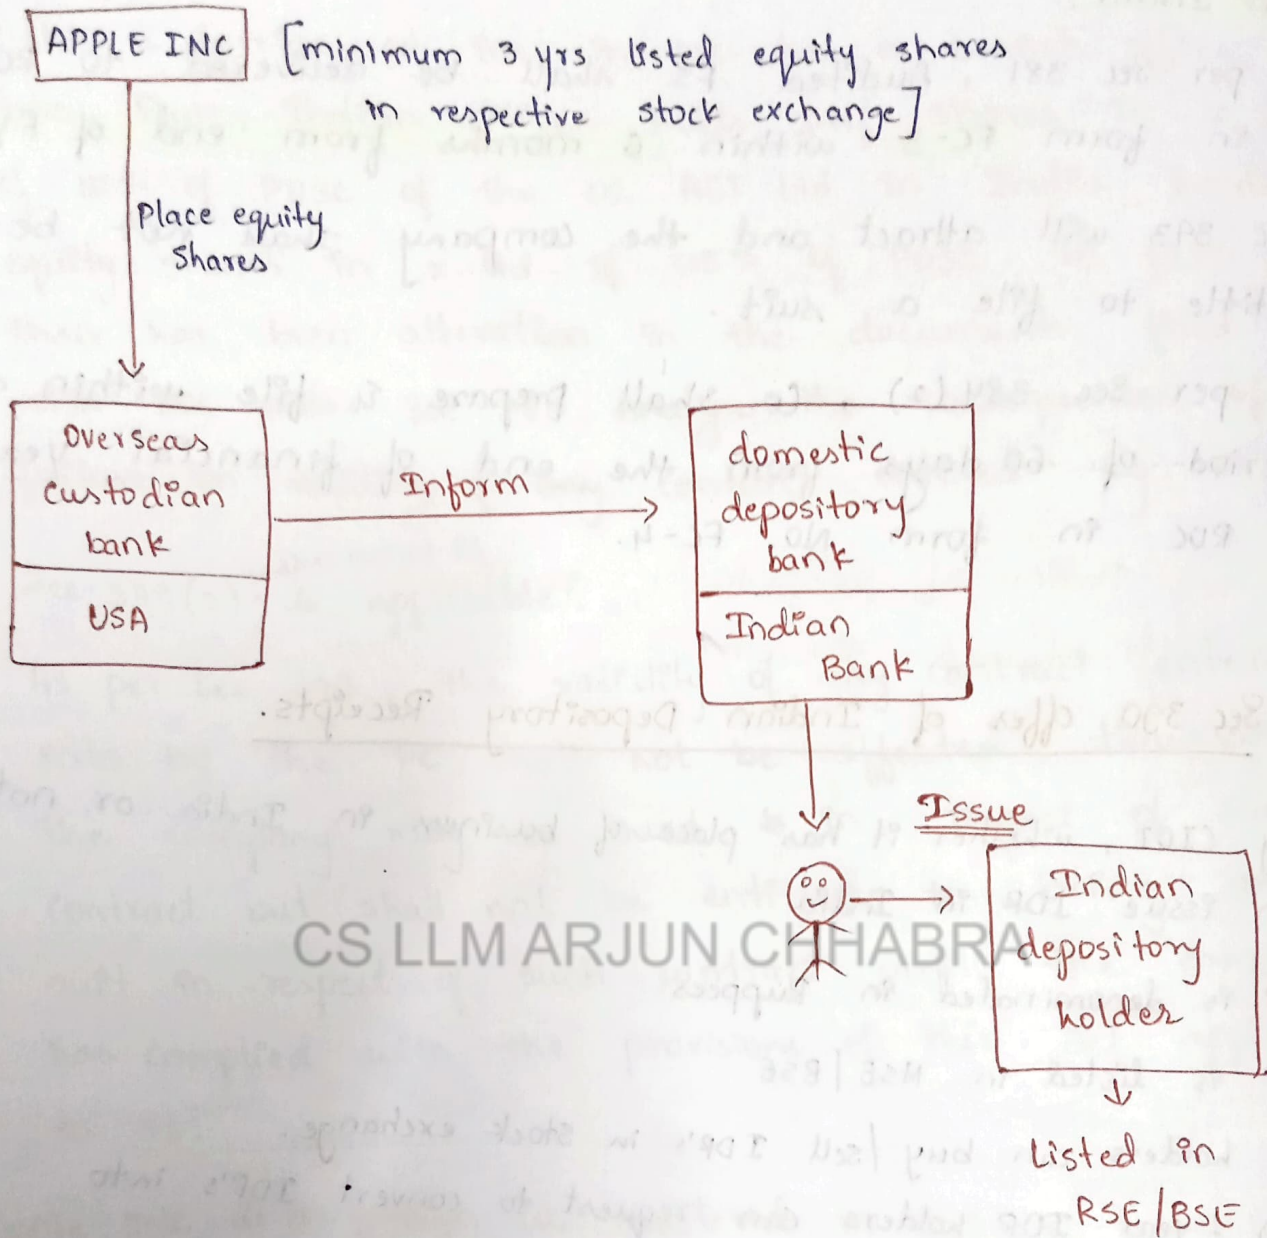 APPLE INC [minimum 3 yrs listed equity shares
in respective stock exchange]
Place equity
shares
Overseas
custodian
bank
USA
Inform
domestic
depository
bank
Indian
Bank
Issue
Indian
depository
holder
CS LLM ARJUN CHHABRA
Listed in
RSE/BSE